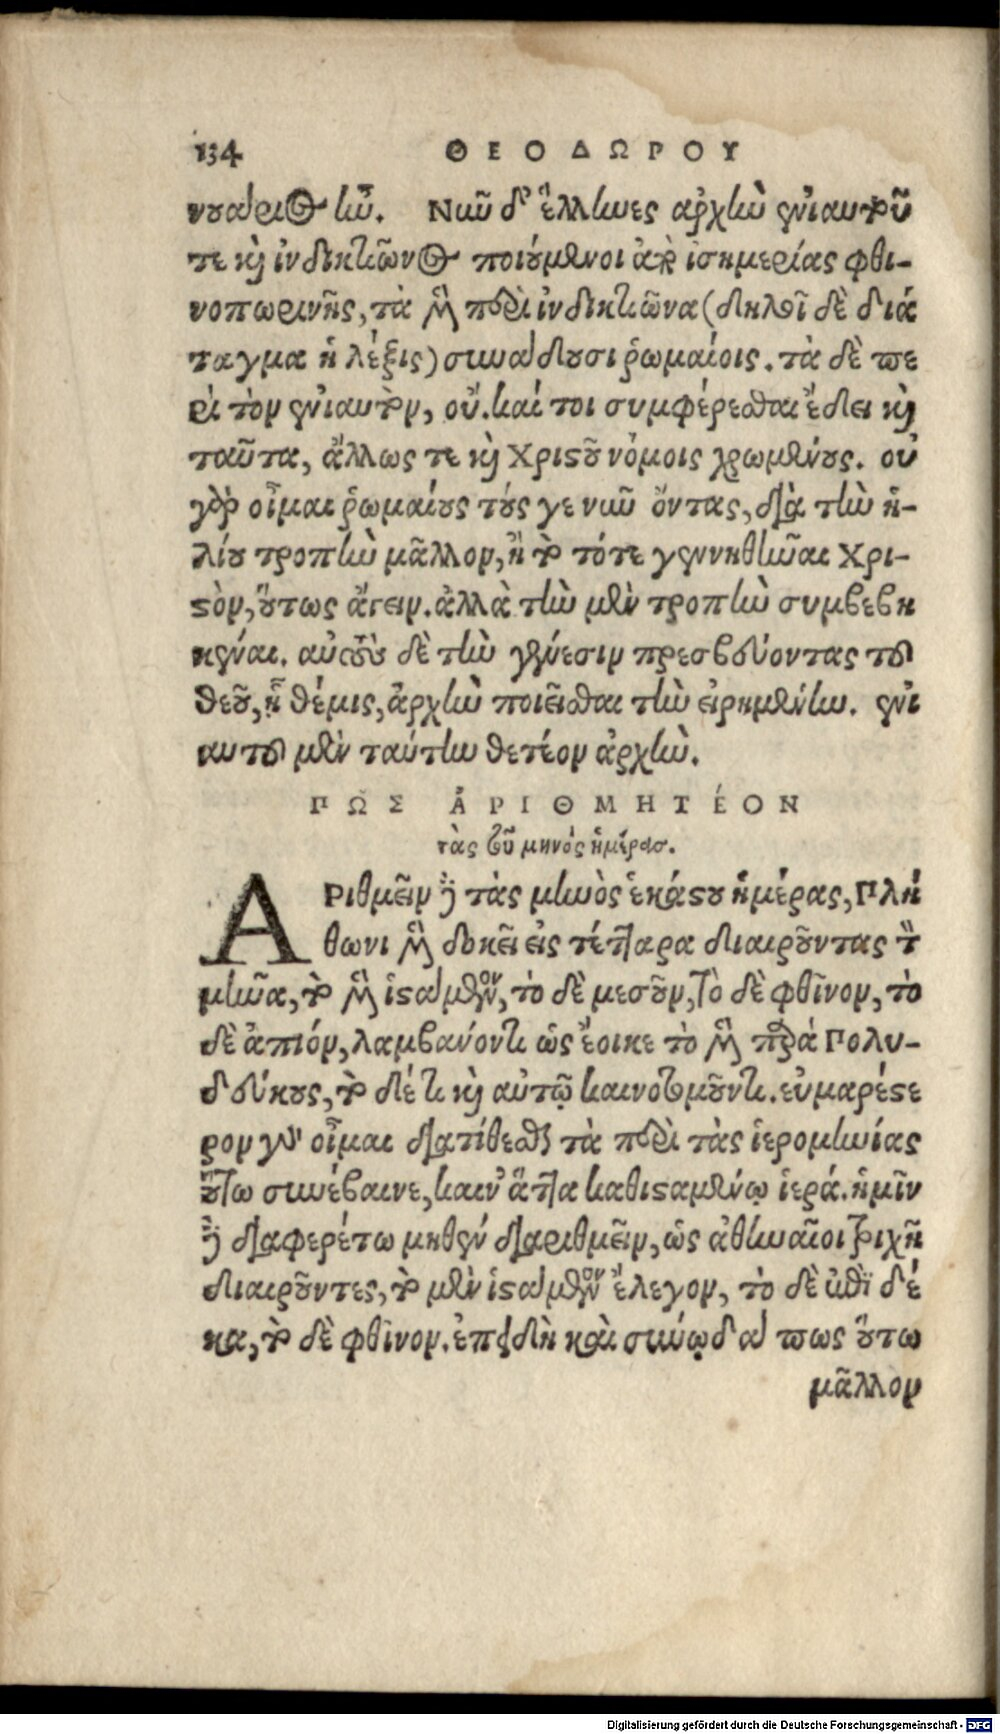 134 ΘΕΟΔΩΡΟΥ
νουάριος ἦν. Νῦν δ' ἕλληνες ἀρχὴν ἐνιαυτοῦ
τε καὶ ἰνδικτιῶνος ποιούμενοι ἀπὸ ἰσημερίας φθι-
νοπωρινῆς, τὰ μὲν περὶ ἰνδικτιῶνα (δηλοῖ δὲ διά
ταγμα ἡ λέξις) συνᾴδουσι ῥωμαίοις. τὰ δὲ πε
ρὶ τὸν ἐνιαυτὸν, οὔ. καί τοι συμφέρεσθαι ἔδει καὶ
ταῦτα, ἄλλως τε καὶ Χριστοῦ νόμοις χρωμένους. οὐ
γὰρ οἶμαι ῥωμαίους τούς γε νῦν ὄντας, διὰ τὴν ἡ-
λίου τροπὴν μᾶλλον, ἢ τὸ τότε γεννηθῆναι Χρι-
στὸν, οὕτως ἄγειν. ἀλλὰ τὴν μὲν τροπὴν συμβεβη
κέναι. αὐτοὺς δὲ τὴν γένεσιν πρεσβεύοντας τοῦ
θεοῦ, ᾗ θέμις, ἀρχὴν ποιεῖσθαι τὴν εἰρημένην. ἐνι
αυτοῦ μὲν ταύτην θετέον ἀρχὴν.
ΠΩ͂Σ ἈΡΙΘΜΗΤΈΟΝ
τὰς τοῦ μηνός ἡμέρας.
ΑΡιθμεῖν δὲ τὰς μηνὸς ἑκάστου ἡμέρας, Πλή
θωνι μὲν δοκεῖ εἰς τέτταρα διαιροῦντας τὸν
μῆνα, τὸ μὲν ἱστάμενον, τὸ δὲ μεσοῦν, τὸ δὲ φθῖνον, τὸ
δὲ ἀπιόν, λαμβάνοντι ὡς ἔοικε τὸ μὲν παρὰ Πολυ-
δεύκους, τὸ δέ τι καὶ αὐτῷ καινοτομοῦντι. εὐμαρέστε
ρον γὰρ οἶμαι διατίθεσθαι τὰ περὶ τὰς ἱερομηνίας
οὕτω συνέβαινε, καινὰ ἄττα καθισταμένῳ ἱερά. ἡμῖν
δὲ διαφερέτω μηθὲν διαριθμεῖν, ὡς ἀθηναῖοι τριχῆ
διαιροῦντες, τὸ μὲν ἱστάμενον ἔλεγον, τὸ δὲ ἐπὶ δέ
κα, τὸ δὲ φθῖνον. ἐπειδὴ καὶ συνῳδά πως οὕτω
μᾶλλον
Digitalisierung gefördert durch die Deutsche Forschungsgemeinschaft - DFG